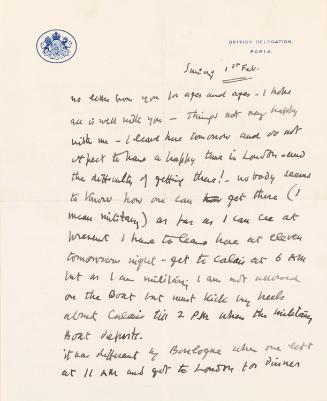 BRITISH DELEGATION,
PARIS.
Sunday 1st Feb.
no letter from you for ages and ages - I hope
all is well with you - Things not very happy
with me - I leave here tomorrow and do not
expect to have a happy time in London - and
the difficulty of getting there! - nobody seems
to know how one can get there (I
mean military) as far as I can see at
present I have to leave here at eleven
tomorrow night - get to Calais at 6 AM
but as I am military I am not allowed
on the Boat but must kick my heels
about Calais till 2 PM when the military
Boat departs.
it was different by Boulogne when one left
at 11 AM and got to London for dinner